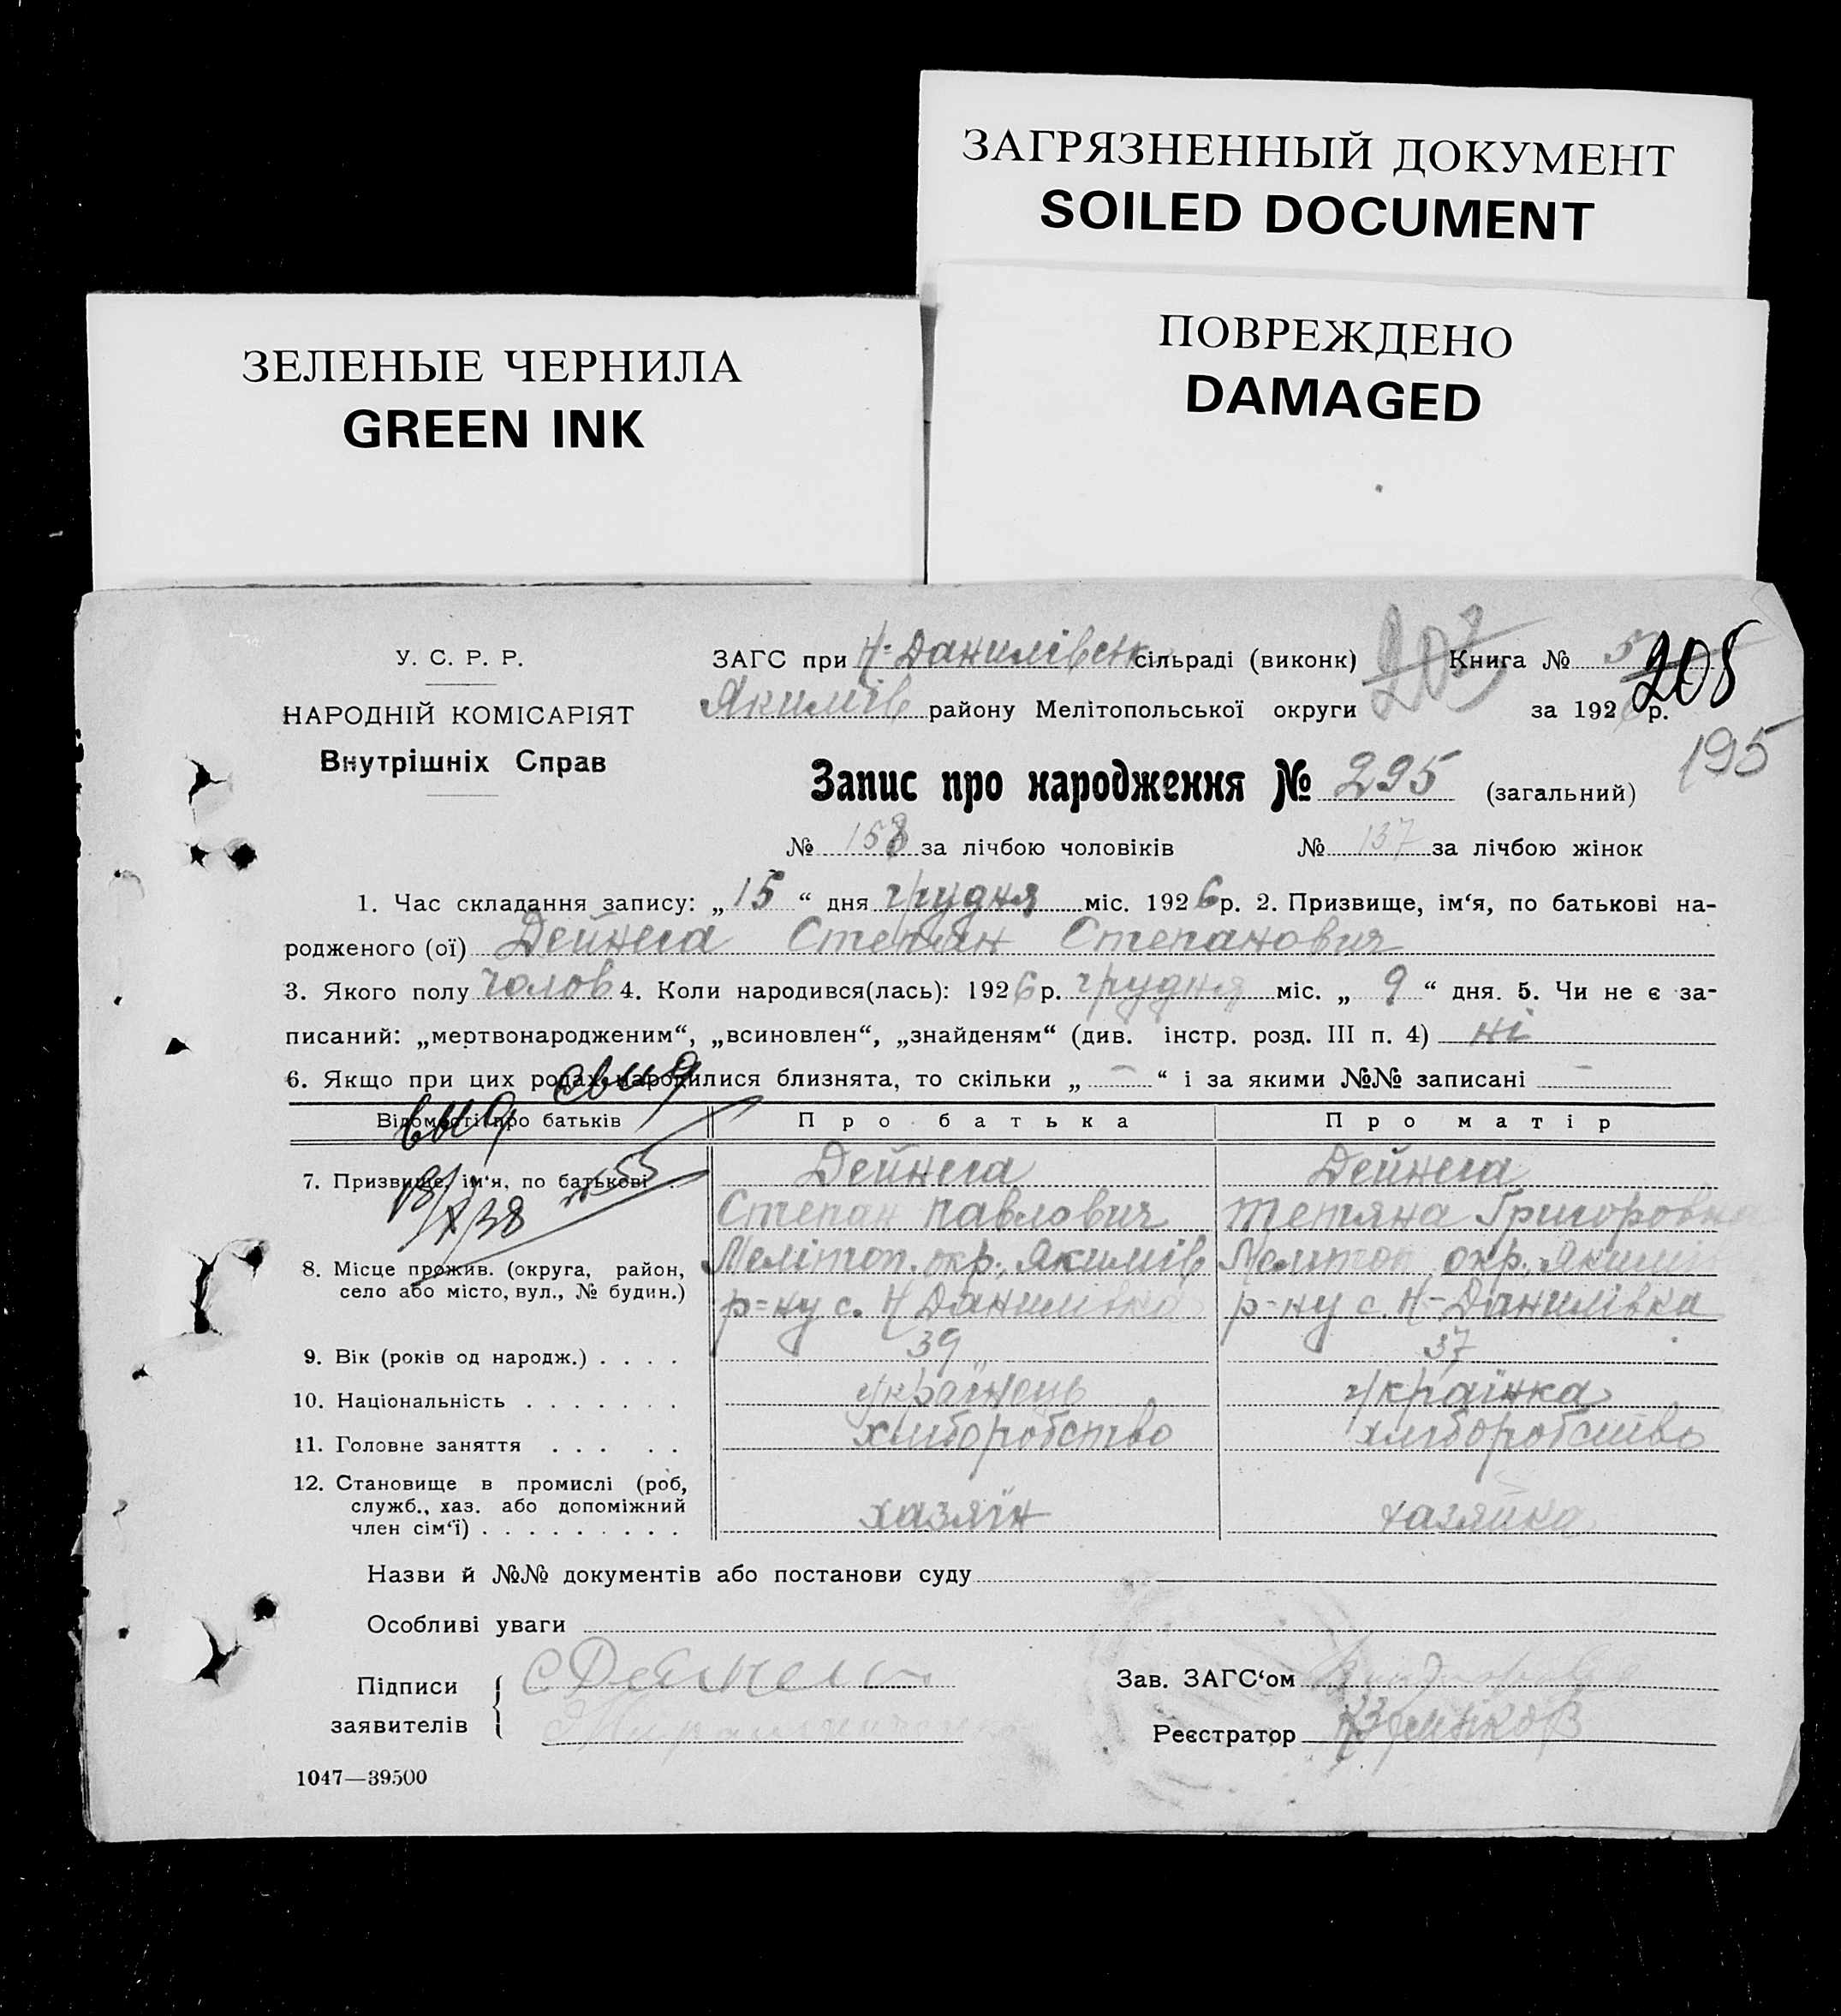 ЗАГРЯЗНЕННЫЙ ДОКУМЕНТ
SOILED DOCUMENT
ЗЕЛЕНЫЕ ЧЕРНИЛА
GREEN INK
ПОВРЕЖДЕНО
DAMAGED
У. С. Р. Р.
НАРОДНІЙ КОМІСАРІЯТ
Внутрішніх Справ
ЗАГС при Н-Данилівськ сільраді (виконк) 207 Книга № 5 208
Якимів району Мелітопольської округи за 1926 р.
195
Запис про народження № 295 (загальний)
№ 158 за лічбою чоловіків № 137 за лічбою жінок
1. Час складання запису: „ 15 “ дня грудня міс. 1926 р. 2. Призвище, ім‘я, по батькові на-
родженого (ої) Дейнега Степан Степанович
3. Якого полу чолов 4. Коли народився(лась): 1926 р. грудня міс. „ 9 “ дня. 5. Чи не є за-
писаний: „мертвонародженим“, „всиновлен“, „знайденям“ (див. інстр. розд. III п. 4) ні
6. Якщо при цих родах народилися близнята, то скільки „ — “ і за якими №№ записані —
Відомості про батьків Про батька Про матір
7. Призвище, ім‘я, по батькові . Дейнега Дейнега
Степан Павлович Тетяна Григоровна
8. Місце прожив. (округа, район, Мелітоп. окр., Якимів Меліtоп окр., Якимів
село або місто, вул., № будин.) р-ну с. Н Данилівка р-ну с. Н-Данилівка
9. Вік (років од народж.) . . . . 39 37
10. Національність . . . . . . . українець українка
11. Головне заняття . . . . . хліборобство хліборобство
12. Становище в промислі (роб,
служб., хаз. або допоміжний хазяїн хазяйка
член сім‘ї) . . . . . . . . .
Назви й №№ документів або постанови суду
Особливі уваги
Підписи С Дейнега Зав. ЗАГС‘ом
заявителів Реєстратор
1047—39500